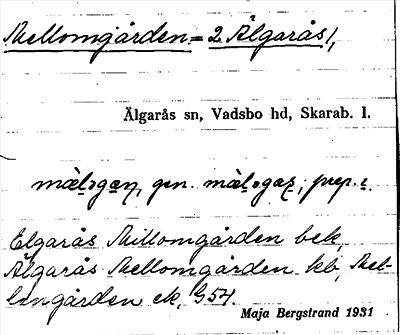 Mellomgården = 2 Älgarås /,
Älgarås sn, Vadsbo hd, Skarab. l.
gen. prep. i
Elgarås Millomgården bek,
Älgarås Mellomgården kb, Mel-
lengården ek, G54.
Maja Bergstrand 1931